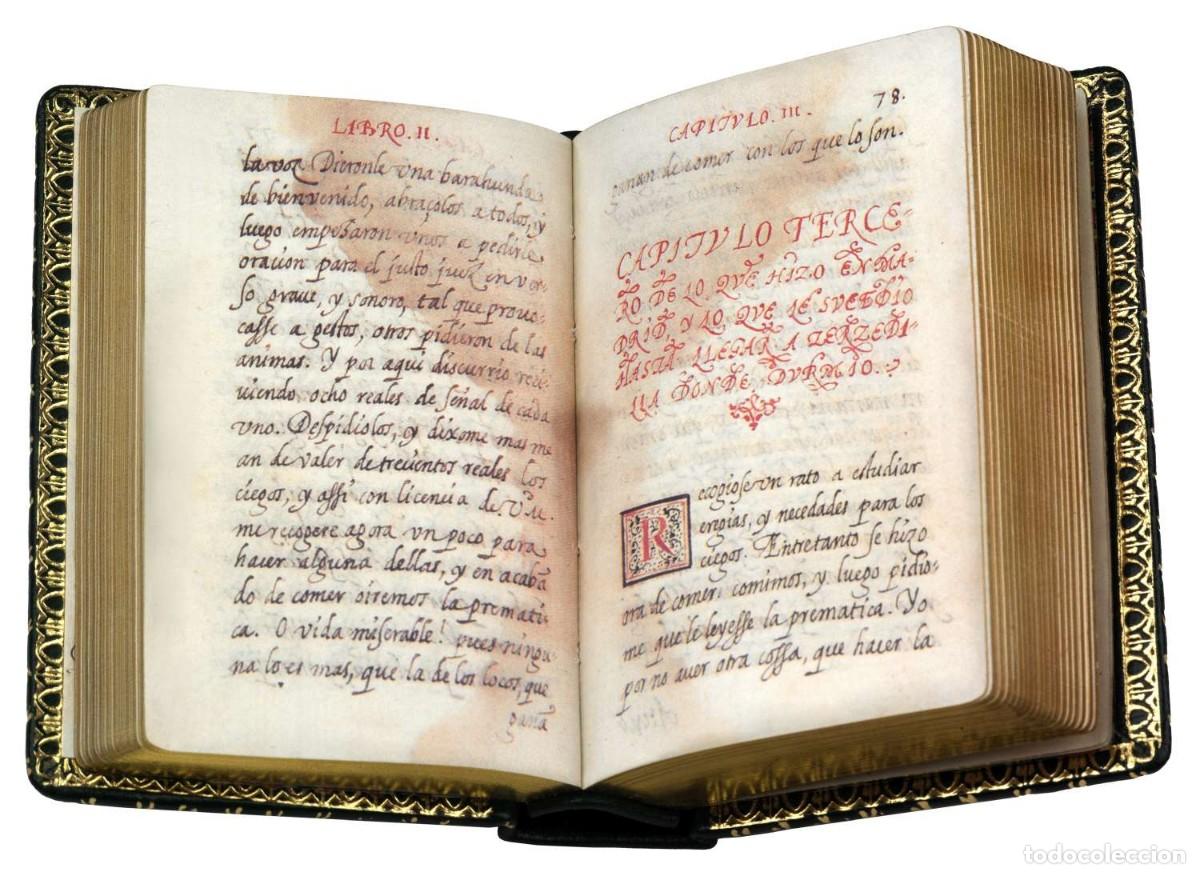 LIBRO. II.
la voz Dieronle una barahunda
de bienvenido, abraçolos a todos, y
luego empeçaron unos a pedirle
oracion para el justo juez en ver-
so grave, y sonoro, tal que provo-
casse a gestos, otros pidieron de las
animas. Y por aqui discurrio reci-
viendo ocho reales de señal de cada
uno. Despidiolos, y dixome mas me
an de valer de trecientos reales los
ciegos, y assi con licencia de V.M.
me recogere agora un poco para
hacer alguna dellas, y en acabā
do de comer oiremos la prematí
ca. O vida miserable! pues ningu
na lo es mas, que la de los locos, que
ganā
CAPITVLO. III.
78.
ganan de comer con los que lo son.
CAPITVLO TERCE-
RO DE LO QVE HIZO EN MA-
DRID, Y LO QVE LE SVCEDIO
HASTA LLEGAR A ZERZEDI-
LLA DONDE DVRMIO.
Recogiose un rato a estudiar
engias, y necedades para los
ciegos. Entretanto se hizo
ora de comer; comimos, y luego pidio-
me que le leyesse la prematica. Yo
por no aver otra cossa, que hacer la
todocoleccion